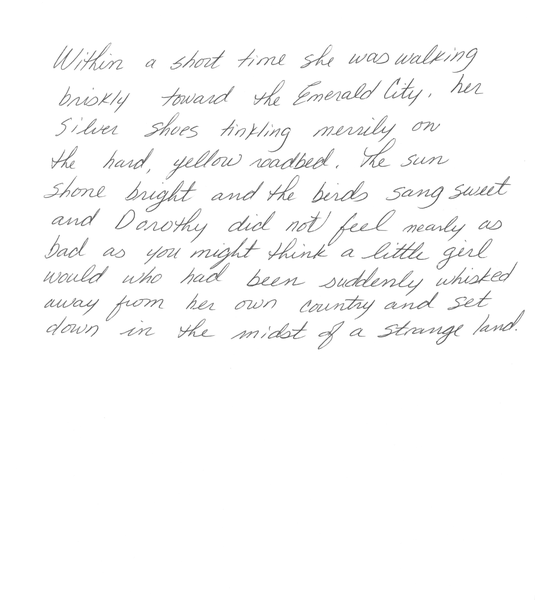 Within a short time she was walking
briskly toward the Emerald City, her
Silver Shoes tinkling merrily on
the hard, yellow roadbed. The sun
shone bright and the birds sang sweet
and Dorothy did not feel nearly as
bad as you might think a little girl
would who had been suddenly whisked
away from her own country and set
down in the midst of a strange land.